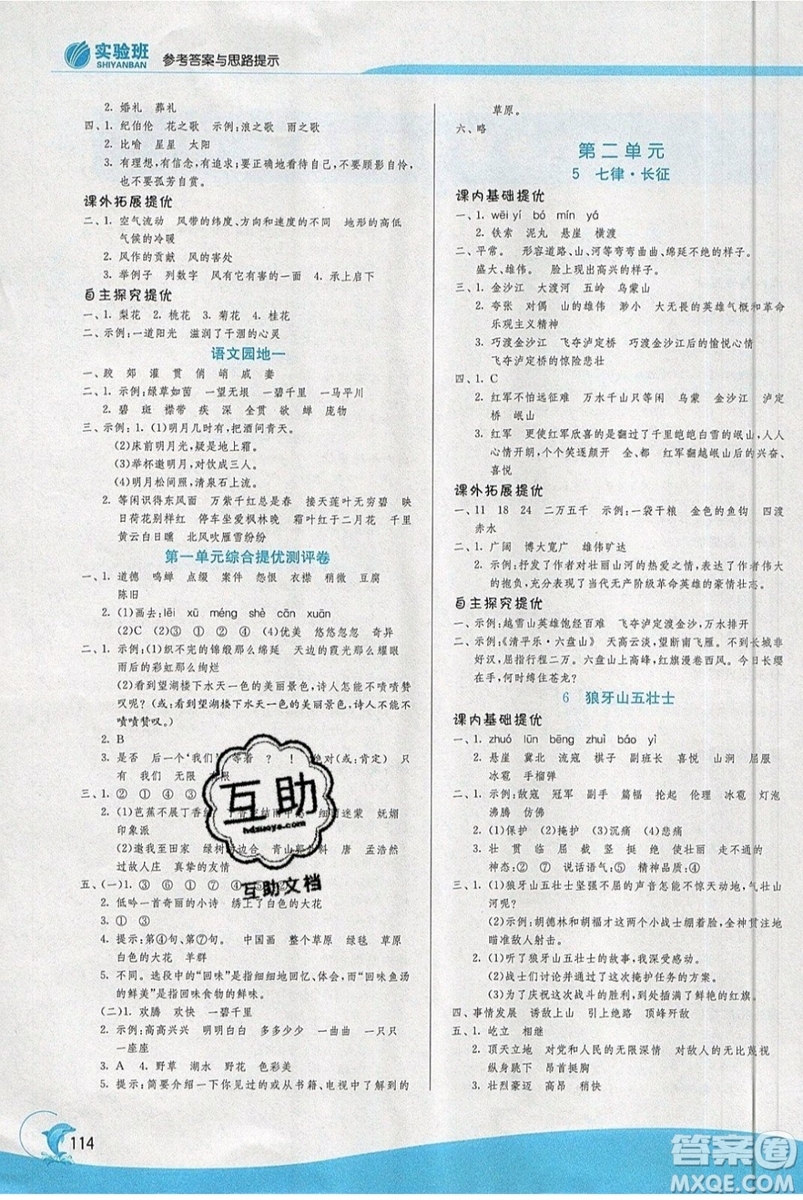 实验班
SHIYANBAN
参考答案与思路提示
2. 婚礼 葬礼
四、1. 纪伯伦 花之歌 示例:浪之歌 雨之歌
2. 比喻 星星 太阳
3. 有理想,有信念,有追求,要正确地看待自己,不要孤芳自赏,也
不要顾影自怜。
课外拓展提优
二、1. 空气流动 风带的纬度、方向和适度的不同 地形的高低
气候的冷暖
2. 风的作用 风的害处
3. 举例子 列数字 风有害的一方面 4. 承上启下
自主探究提优
一、1. 梨花 2. 桃花 3. 菊花 4. 桂花
二、示例:一道阳光 滋润了干涸的心灵
语文园地一
一、跤 郊 灌 贯 俏 哨 戚 妻
二、1. 示例:绿草如茵 一望无垠 一碧千里 一马平川
2. 碧 斑 襟带 疾 深 全贯 欲 蝉 庞物
三、示例:1. (1)明月几时有,把酒问青天。
(2)床前明月光,疑是地上霜。
(3)举杯邀明月,对饮成三人。
(4)明月松间照,清泉石上流。
2. 等闲识得东风面 万紫千红总是春 接天莲叶无穷碧 映
日荷花别样红 停车坐爱枫林晚 霜叶红于二月花 千里
黄云白日曛 北风吹雁雪纷纷
第一单元综合提优测评卷
一、1. 道德 鸣蝉 点缀 案件 怨恨 衣襟 稍微 豆腐
陈旧
2. (1)画去:lēi xū méng shè cān xuān
(2)C (3)③ ① ② (4)优美 悠悠忽忽 奇异
3. 示例:(1)织不完的锦缎那么绵延 天边的霞光那么耀眼
雨后的彩虹那么绚烂
(2)看到望湖楼下水天一色的美丽景色,诗人怎能不啧啧赞
叹呢?(或:看到望湖楼下水天一色的美丽景色,诗人不能不
啧啧赞叹。)
二、2. B
3. 是否 后一个“我们” 等着 ? ! 绝对(或:肯定) 只
有 我们 无限 无限
三、1. ① ② ③
2. (1)芭蕉不展丁香 细雨菖蒲 细雨菖蒲 妩媚
印象派
(2)邀我至田家 绿树村边合 青山郭外斜 唐 孟浩然
过故人庄 真挚的友情
五、(一)1. ③ ⑥ ① ④
2. 低吟一首奇丽的小诗 绣上了白色的大花
3. ① ③
4. 提示:第④句、第⑦句。 中国画 整个草原 绿毯 草原
白色的大花 羊群
5. 不同。选段中的“回味”是慢慢地回忆、体会,而“回味鱼汤
的鲜味”是回味食物的鲜味。
(二)1. 欢腾 欢快 一碧千里
2. 示例:高高兴兴 明明白白 多多少少 一曲曲 一只只
一座座
3. A 4. 野草 湖水 野花 色彩美
5. 提示:简要介绍一下你见过的或从书籍、电视中了解到的
草原。
六、略
第二单元
5 七律·长征
课内基础提优
一、1. wēi yí bó mín yá
2. 铁索 泥丸 悬崖 横渡
二、平常。 形容道路、山、河等弯弯曲曲、绵延不绝的样子。
盛大、雄伟。 脸上现出高兴的样子。
三、1. 金沙江 大渡河 五岭 乌蒙山
2. 夸张 对偶 山的雄伟 渺小 大无畏的英雄气概和革命
乐观主义精神
3. 巧渡金沙江 飞夺泸定桥 巧渡金沙江后的愉悦心情
飞夺泸定桥的惊险悲壮
四、1. C
2. 红军不怕远征难 万水千山只等闲 乌蒙 金沙江 泸定
桥 岷山
3. 红军 更使红军欣喜的是翻过了千里皑皑白雪的岷山,人人
心情开朗,个个笑逐颜开 翻越岷山后胜利在望的兴奋、
喜悦
课外拓展提优
一、11 18 24 二万五千 示例:一袋干粮 金色的鱼钩 四渡
赤水
二、1. 广阔 博大宽广 雄伟旷达
2. 示例:抒发了作者对壮丽山河的热爱之情,表达了作者伟大
的抱负,充分表现出了当代无产阶级革命英雄的豪情壮志。
自主探究提优
一、示例:越雪山英雄饱经百难 飞夺泸定渡大渡,万水排开
二、示例:《清平乐·六盘山》 天高云淡,望断南飞雁。不到长城非
好汉,屈指行程二万。六盘山上高峰,红旗漫卷西风。今日长缨
在手,何时缚住苍龙?
6 狼牙山五壮士
课内基础提优
一、1. zhuó lūn bēng zhuì báo yì
2. 悬崖 冀北 流寇 棋子 副班长 喜悦 山涧 屈服
冰雹 手榴弹
3. 示例:敌寇 冠军 副业 幅员 抡起 伦理 冰雹 灯泡
沸腾 仿佛
二、2. (1)保护 (2)掩护 (3)沉痛 (4)悲痛
3. 壮 贯 屈 居 截 坚 挺 绝 使 斩
神态:② ⑥ 语言:⑤ 精神品质:①
三、1. (1)狼牙山五壮士坚强不屈的声音怎能不惊天动地,气壮山
河?
(2)示例:胡德林和胡福才这两个小战士绷着脸,全神贯注地
向敌人射击。
2. (1)听了狼牙山五壮士的故事,我深受感动。
(2)战士们讨论并通过了这次掩护任务的方案。
(3)为了庆祝这次战斗的胜利,到处挂满了鲜艳的红旗。
四、事情发展 诱敌上山 引上绝路 顶峰歼敌
五、1. 屹立 相继
2. 顶天立地 对党和人民的无限深情 对敌人的无比蔑视
纵身跳崖 热爱祖国、热爱人民、勇于牺牲
3. 壮烈豪迈 高昂 稍快
114
互助
hdzuoye.com
互助文档
答案圈
MXQE.COM